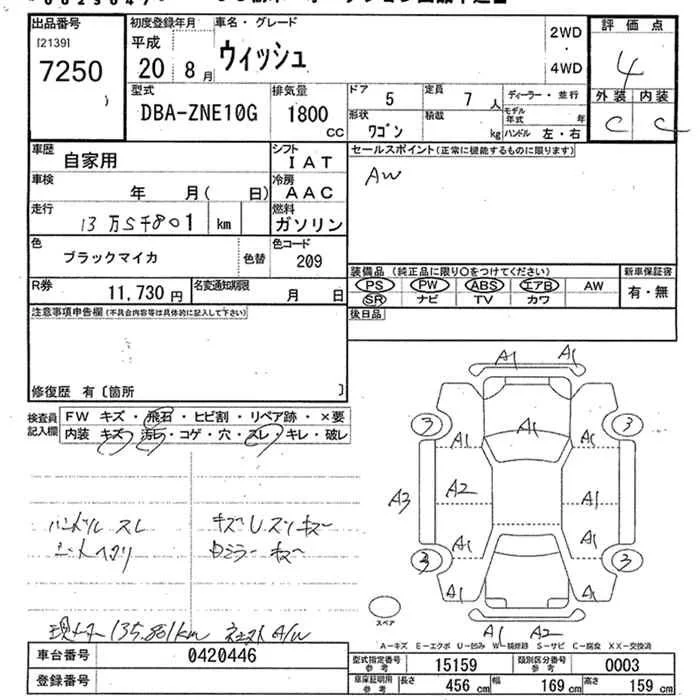 出品番号
[2139]
7250
初度登録年月
平成
20 8月
車名・グレード
ウィッシュ
2WD
・
4WD
評価点
4
外装 内装
C C
型式
DBA-ZNE10G
排気量
1800
CC
ドア
5
定員
7 人
ディーラー・並行
形状
ワゴン
積載
kg
モデル年式 年
ハンドル 左・右
車歴
自家用
シフト
IAT
セールスポイント(正常に機能するものに限ります)
AW
車検
年 月( 日)
冷房
AAC
走行
13万5千801 km
燃料
ガソリン
色
ブラックマイカ
色替
色コード
209
装備品 (純正品に限り○をつけてください)
新車保証書
PS PW ABS エアB AW
SR ナビ TV カワ
有・無
R券
11,730 円
名変通知期限
月 日
後日品
注意事項申告欄(不具合内容等は具体的に記入して下さい)
修復歴 有〔箇所 〕
検査員記入欄
FW キズ・飛石・ヒビ割・リペア跡・×要
内装 キズ・汚れ・コゲ・穴・スレ・キレ・破レ
A1 A1
3 3
A1
A1 A1
A3 A2 A1
A1 A1
3 3
A1 A1
A1 A2
ハンドル スレ
スペア
現メーター 135,801km
A/W
A−キズ E−エクボ U−凹み W−補修跡 S−サビ C−腐食 XX−交換済
車台番号
0420446
型式指定番号
参考
15159
類別区分番号
参考
0003
登録番号
車庫証明用
参考
長さ 456 cm
幅 169 cm
高さ 159 cm